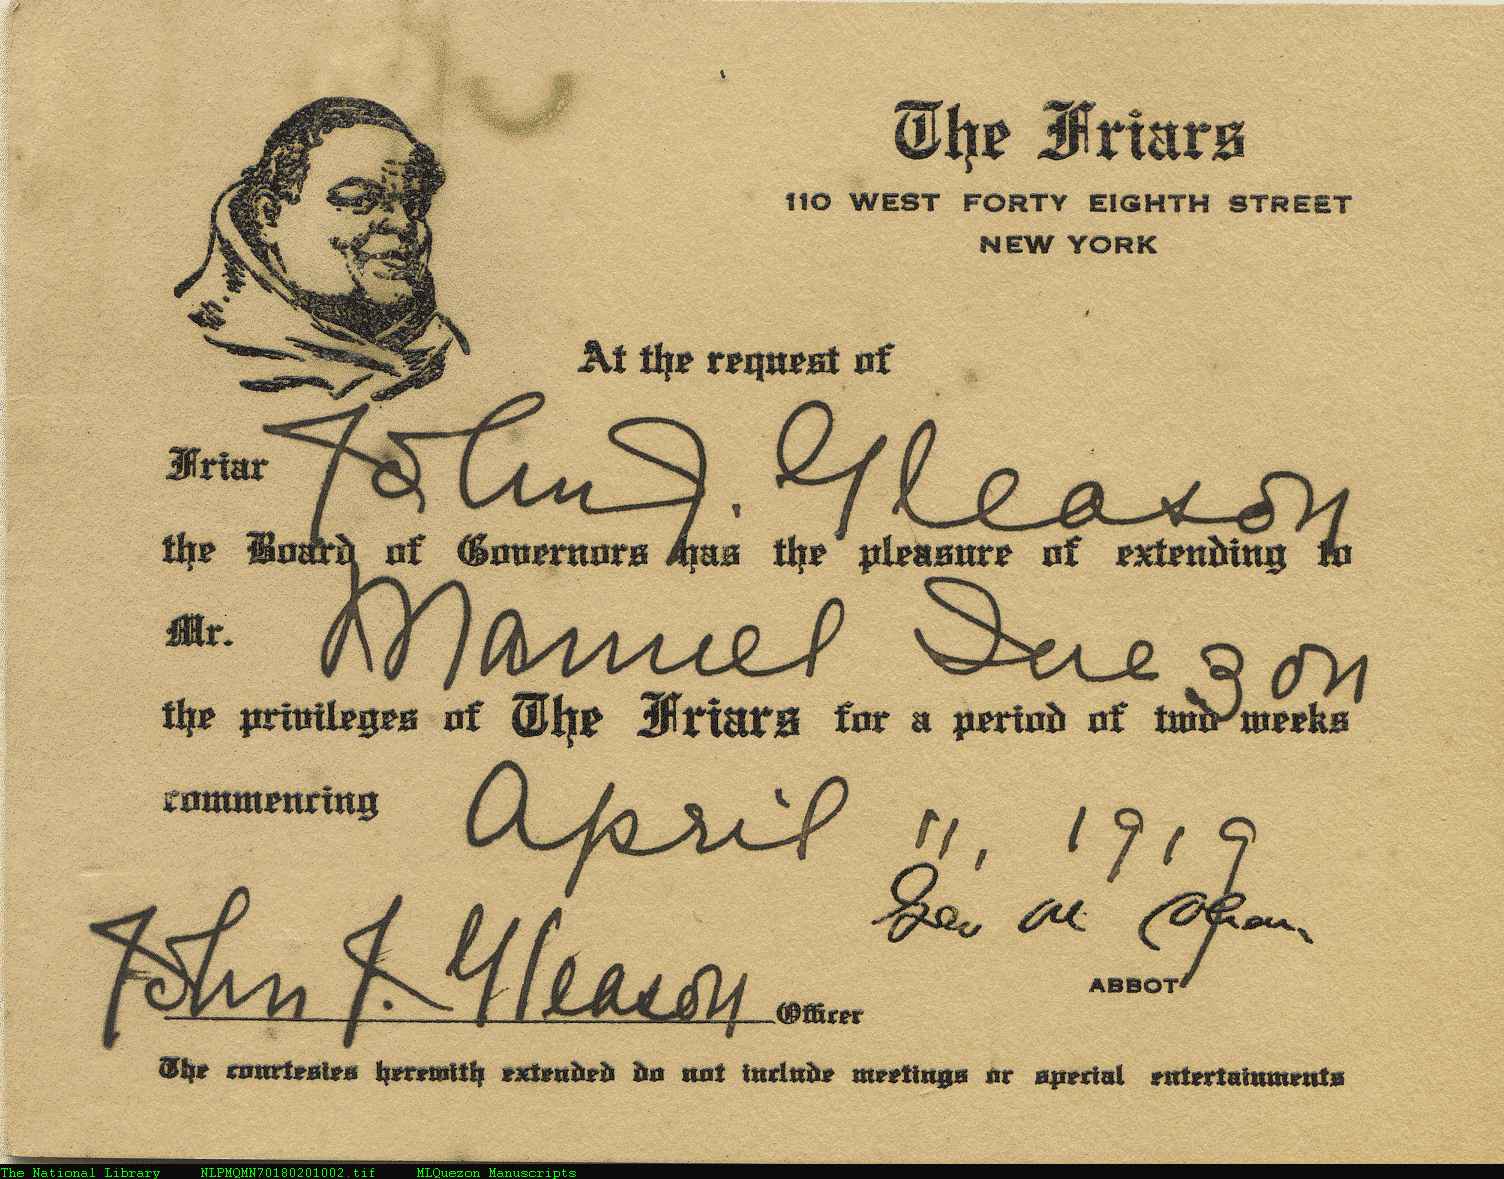 The Friars
110 WEST FORTY EIGHTH STREET
NEW YORK
At the request of
Friar John J. Gleason
the Board of Governors has the pleasure of extending to
Mr. Manuel Quezon
the privileges of The Friars for a period of two weeks
commencing April 11, 1919
Geo M Cohan
ABBOT
John J. Gleason Officer
The courtesies herewith extended do not include meetings or special entertainments
The National Library NLPMQMN70180201002.tif MLQuezon Manuscripts